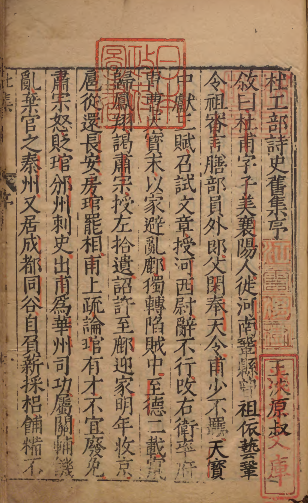 杜工部詩史舊集序
王洙原叔
敘曰杜甫字子美襄陽人徙河南鞏縣曾祖依藝鞏
令祖審言膳部員外郎父閑奉天令甫少不羈天寶
中獻三賦召試文章授河西尉辭不行改右衛率府
胄曹天寶末以家避亂鄜獨轉陷賊中至德二載竄
歸鳳翔謁肅宗授左拾遺詔許至鄜迎家明年收京
扈從還長安房琯罷相甫上疏論琯有才不宜廢免
肅宗怒貶琯邠州刺史出甫為華州司功屬關輔饑
亂棄官之秦州又居成都同谷自負薪採梠餔糒不